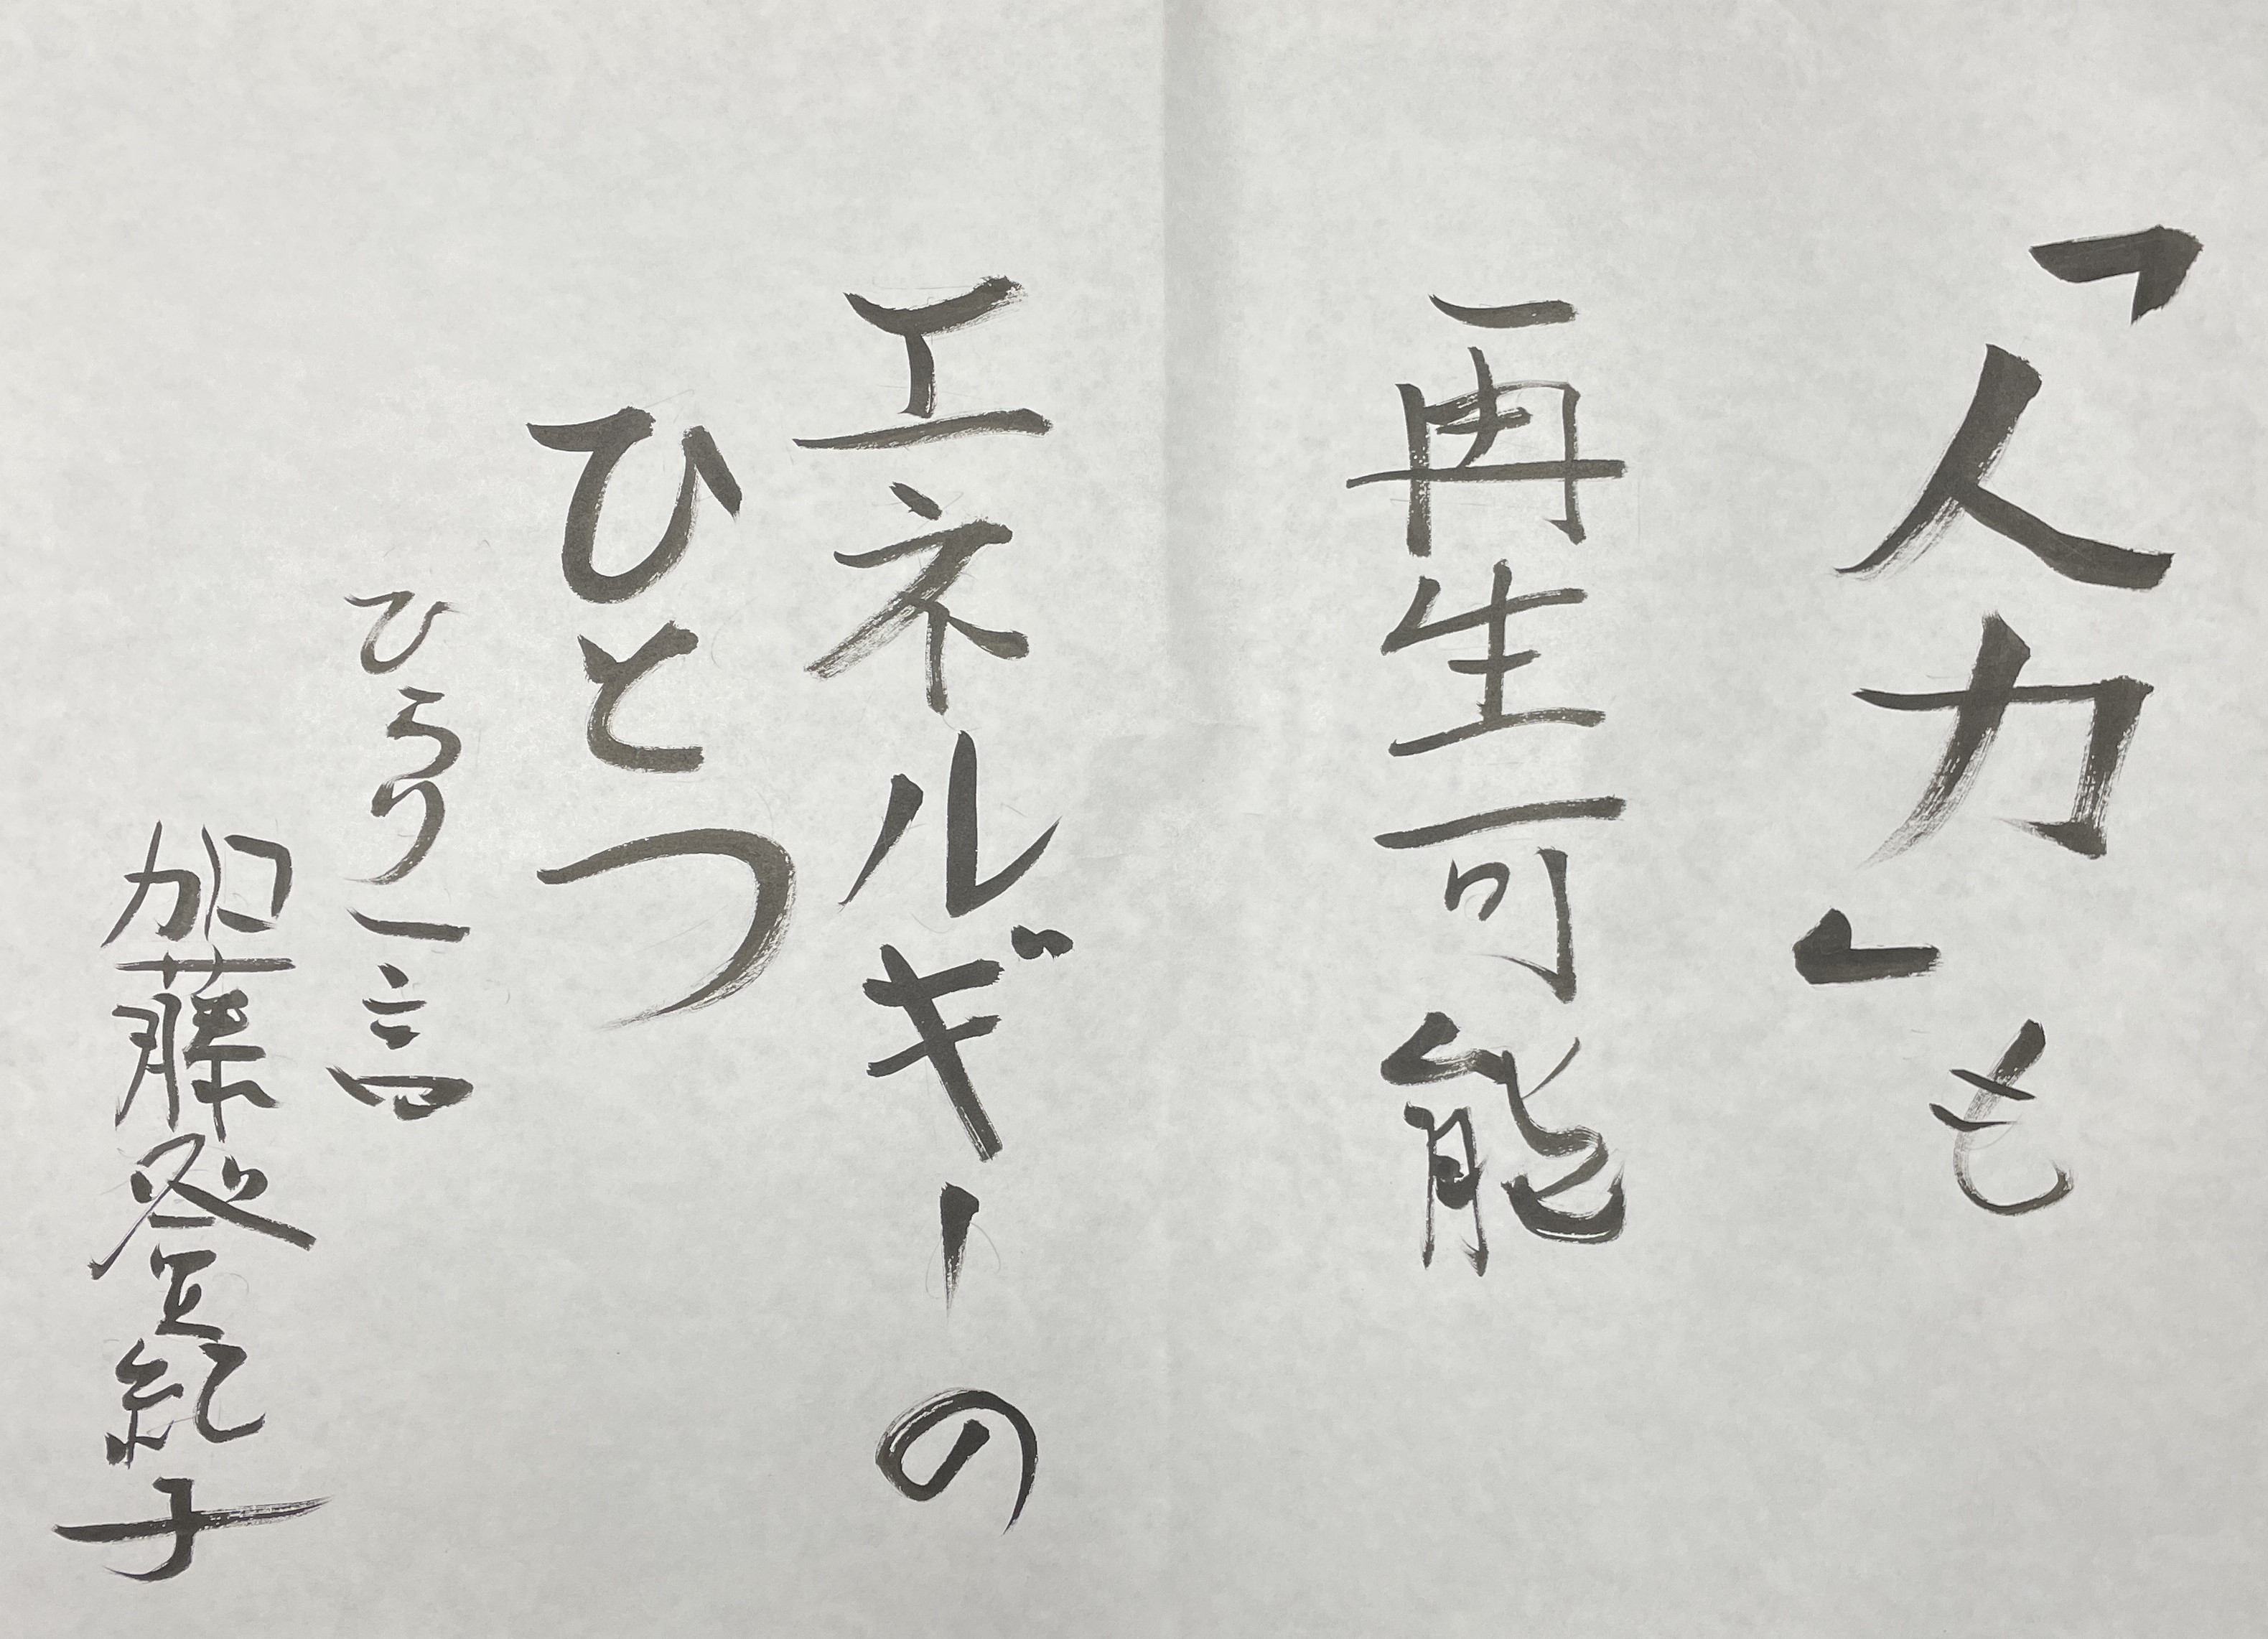 「人力」も
再生可能
エネルギーの
ひとつ
ひらり一言
加藤登紀子